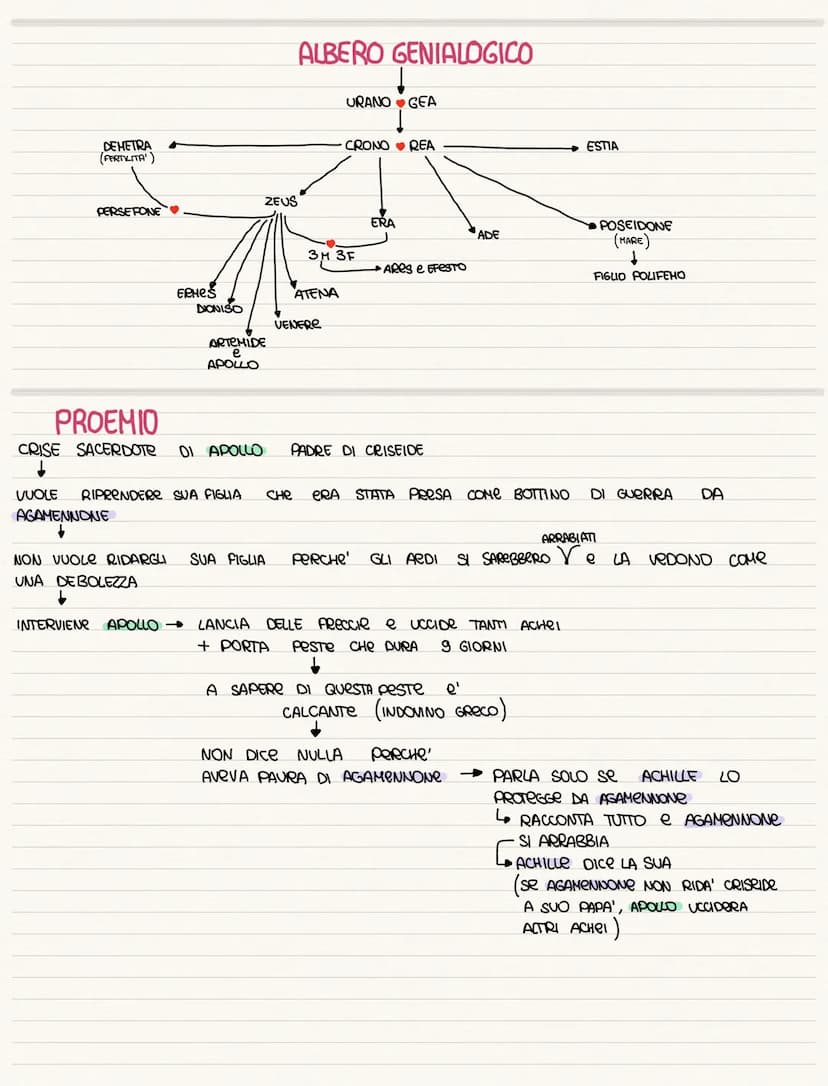 ALBERO GENIALOGICO
URANO ♥ GEA
DEMETRA
(FERTILITA')
CRONO ♥ REA
ESTIA
PERSEFONE ♥
ZEUS
ERA
ADE
POSEIDONE
(MARE)
FIGLIO POLIFEMO
♥
3M 3F
ARES e EFESTO
ERMES
DIONISO
ATENA
VENERE
ARTEMIDE
e
APOLLO
PROEMIO
CRISE SACERDOTE DI APOLLO PADRE DI CRISEIDE
VUOLE RIPRENDERE SUA FIGLIA CHE ERA STATA PRESA COME BOTTINO DI GUERRA DA
AGAMENNONE
ARRABIATI
NON VUOLE RIDARGLI SUA FIGLIA PERCHE' GLI AEDI SI SAREBBERO V e LA VEDONO COME
UNA DEBOLEZZA
INTERVIENE APOLLO → LANCIA DELLE FRECCIE e UCCIDE TANTI ACHEI
+ PORTA PESTE CHE DURA 9 GIORNI
A SAPERE DI QUESTA PESTE E'
CALCANTE (INDOVINO GRECO)
NON DICE NULLA PERCHE'
AVEVA PAURA DI AGAMENNONE → PARLA SOLO SE ACHILLE LO
PROTEGGE DA AGAMENNONE
RACCONTA TUTTO e AGAMENNONE
SI ARRABBIA
ACHILLE DICE LA SUA
(SE AGAMENNONE NON RIDA' CRISEIDE
A SUO PAPA', APOLLO UCCIDERA
ALTRI ACHEI)